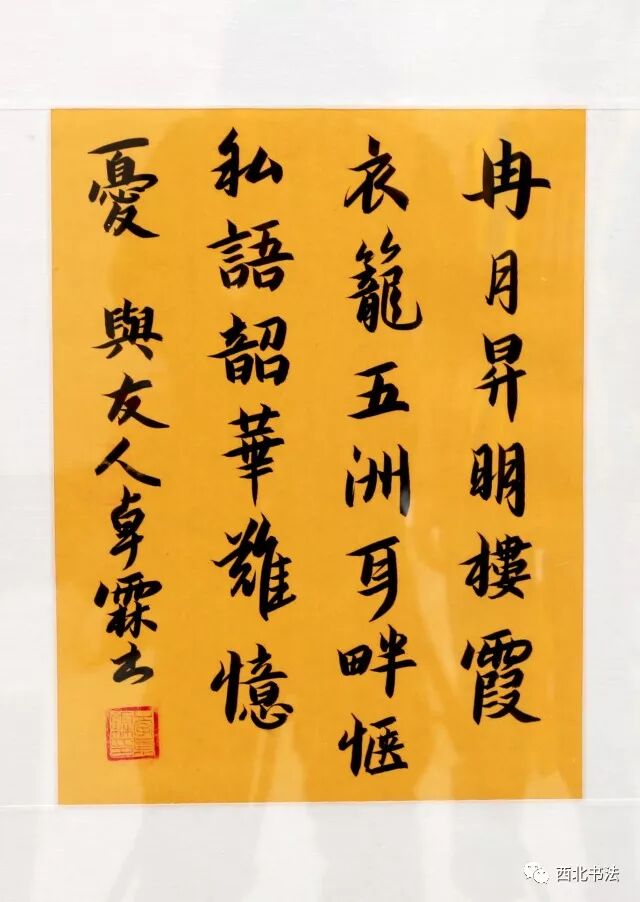 冉月昇明樓霞
衣籠五洲耳畔愜
私語韶華難憶
憂 與友人卓霖書
西北书法